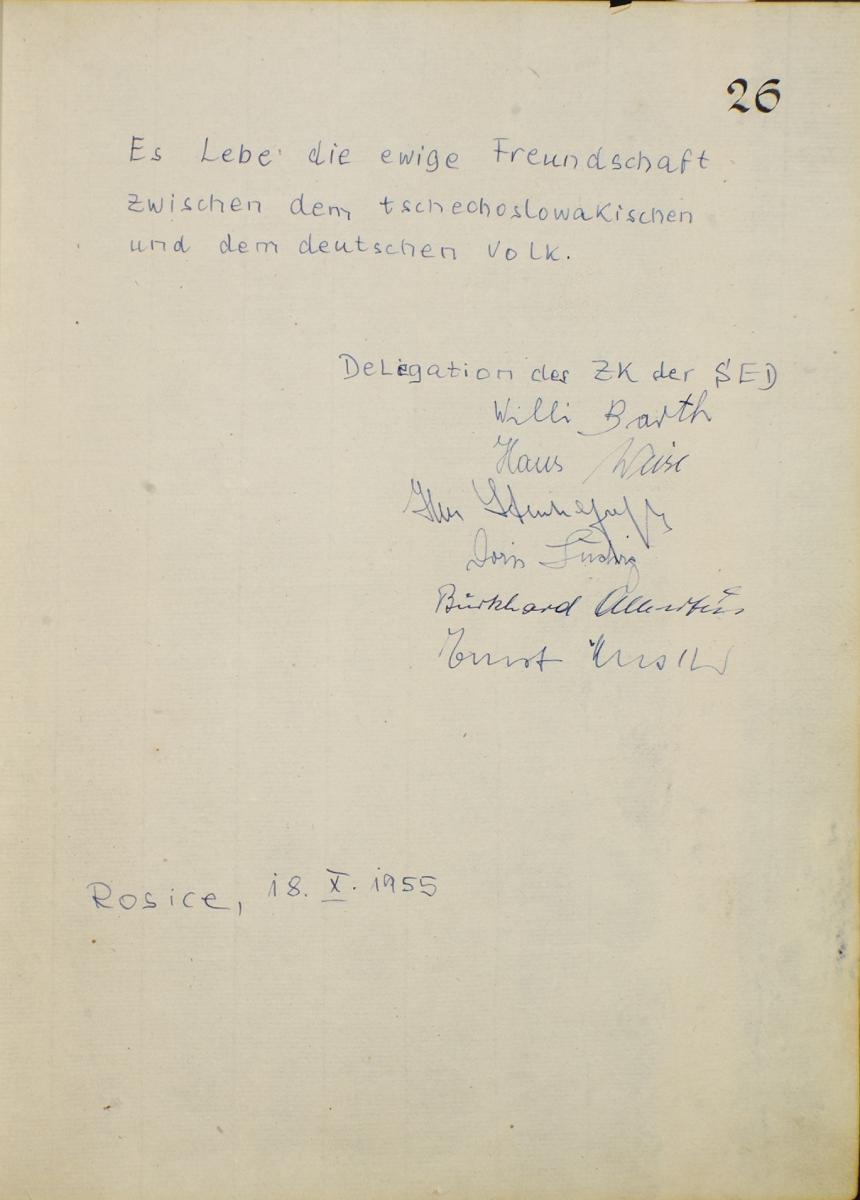 26
Es Lebe die ewige Freundschaft
zwischen dem tschechoslowakischen
und dem deutschen Volk.
Delegation des ZK der SED
Willi Barth
Hans Weise
Doris Ludwig
Burkhard
Ernst
Rosice, 18. X. 1955